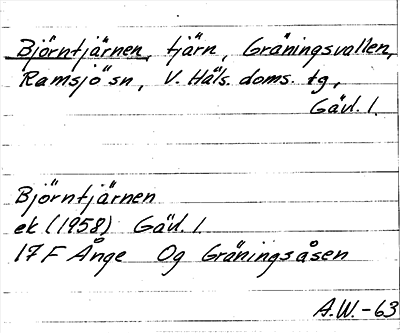 Björntjärnen, tjärn, Gräningsvallen,
Ramsjö sn, V. Häls. doms. tg,
Gävl. l.
Björntjärnen
ek (1958) Gävl. l.
17 F Ånge Og Gräningsåsen
A.W.-63